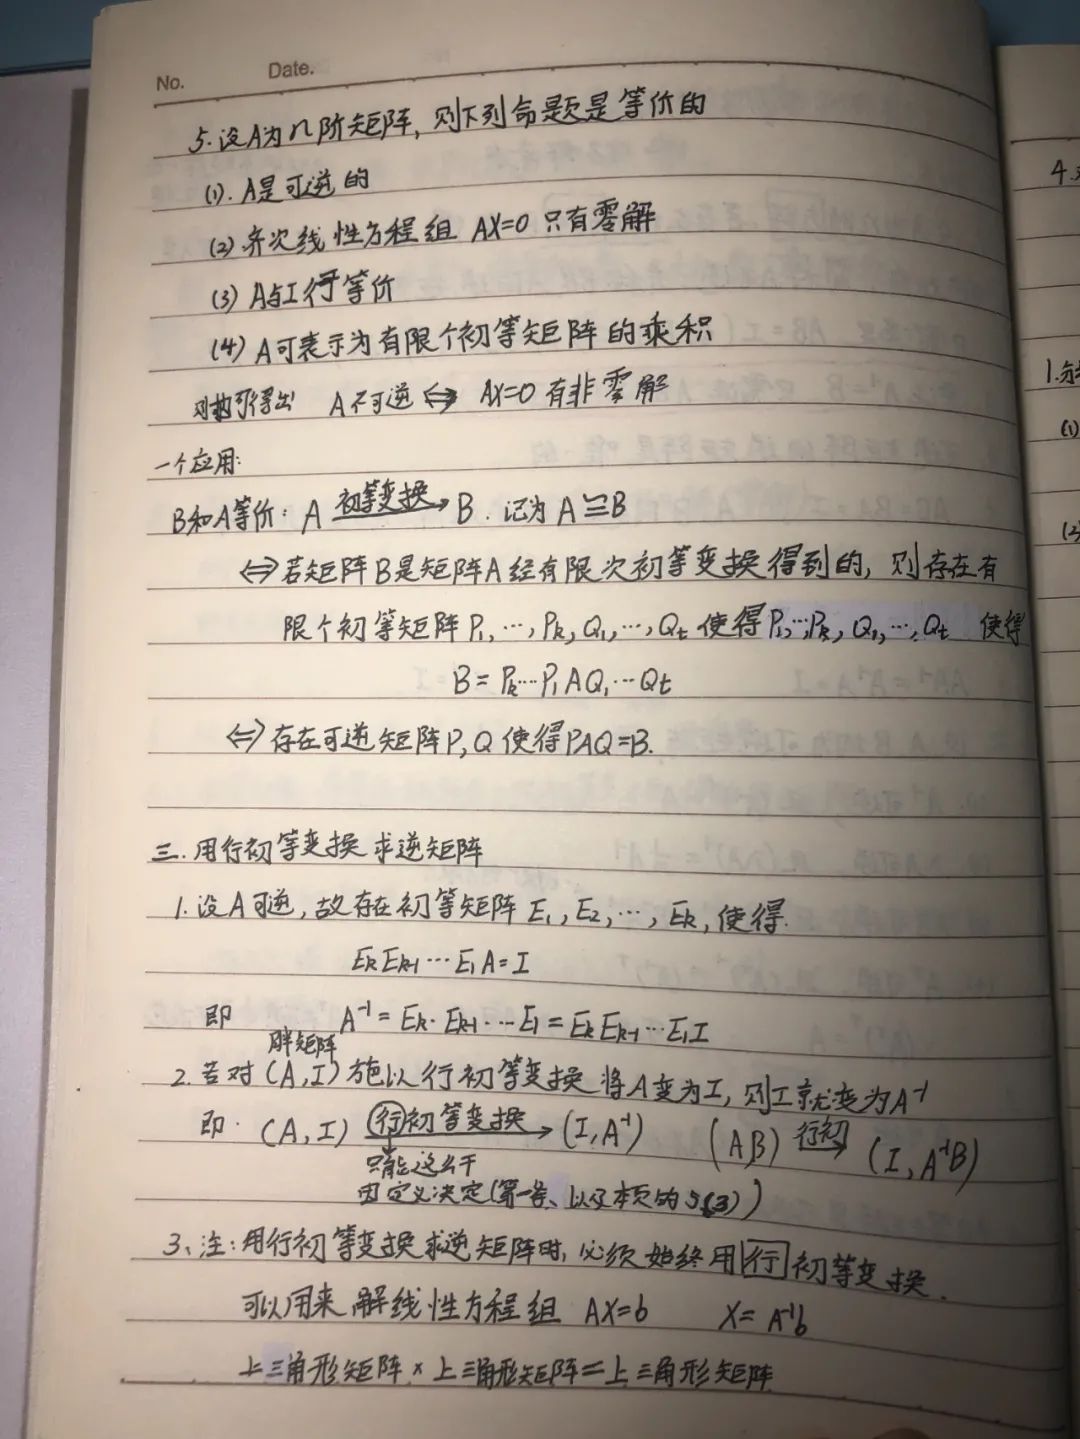 No. Date.
5. 设A为n阶矩阵, 则下列命题是等价的
(1). A是可逆的
(2) 齐次线性方程组 AX=0 只有零解
(3) A与I行等价
(4) A可表示为有限个初等矩阵的乘积
得出 A不可逆 ⇔ AX=0 有非零解
一个应用:
B和A等价: A 初等变换→ B. 记为 A≅B
⇔若矩阵B是矩阵A经有限次初等变换得到的, 则存在有
限个初等矩阵P₁,…,Pₖ,Q₁,…,Qₜ 使得P₁,…,Pₖ,Q₁,…,Qₜ 使得
B=Pₖ…P₁AQ₁…Qₜ
⇔存在可逆矩阵P,Q使得PAQ=B.
三. 用行初等变换求逆矩阵
1. 设A可逆, 故存在初等矩阵 E₁,E₂,…,Eₖ, 使得.
EₖEₖ₋₁…E₁A=I
即 A⁻¹=Eₖ·Eₖ₋₁·…E₁=EₖEₖ₋₁…E₁I
胖矩阵
2. 若对(A,I)施以行初等变换将A变为I, 则I就变为A⁻¹
即. (A,I) 行初等变换→ (I,A⁻¹) (AB) 行初→ (I,A⁻¹B)
只能这么干
因定义决定(第一条、以及本页的5(3))
3、注: 用行初等变换求逆矩阵时, 必须始终用行初等变换.
可以用来解线性方程组 AX=b X=A⁻¹b
上三角形矩阵×上三角形矩阵=上三角形矩阵
4.
1.
(1)
(2)